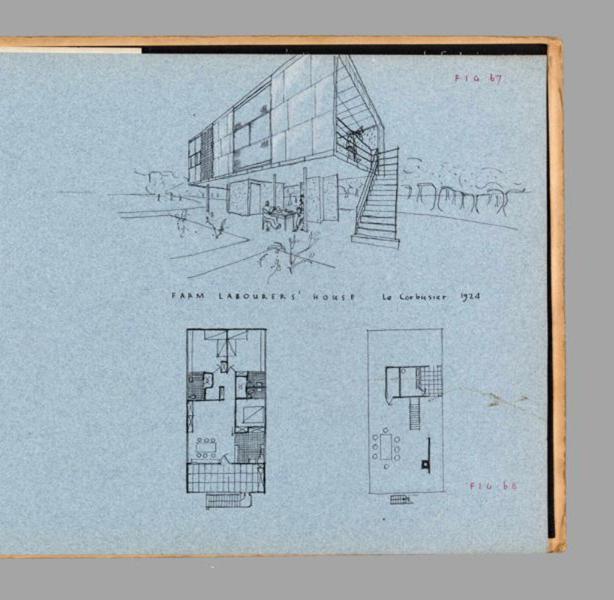 FIG 67
FARM LABOURERS' HOUSE Le Corbusier 1924
FIG 68